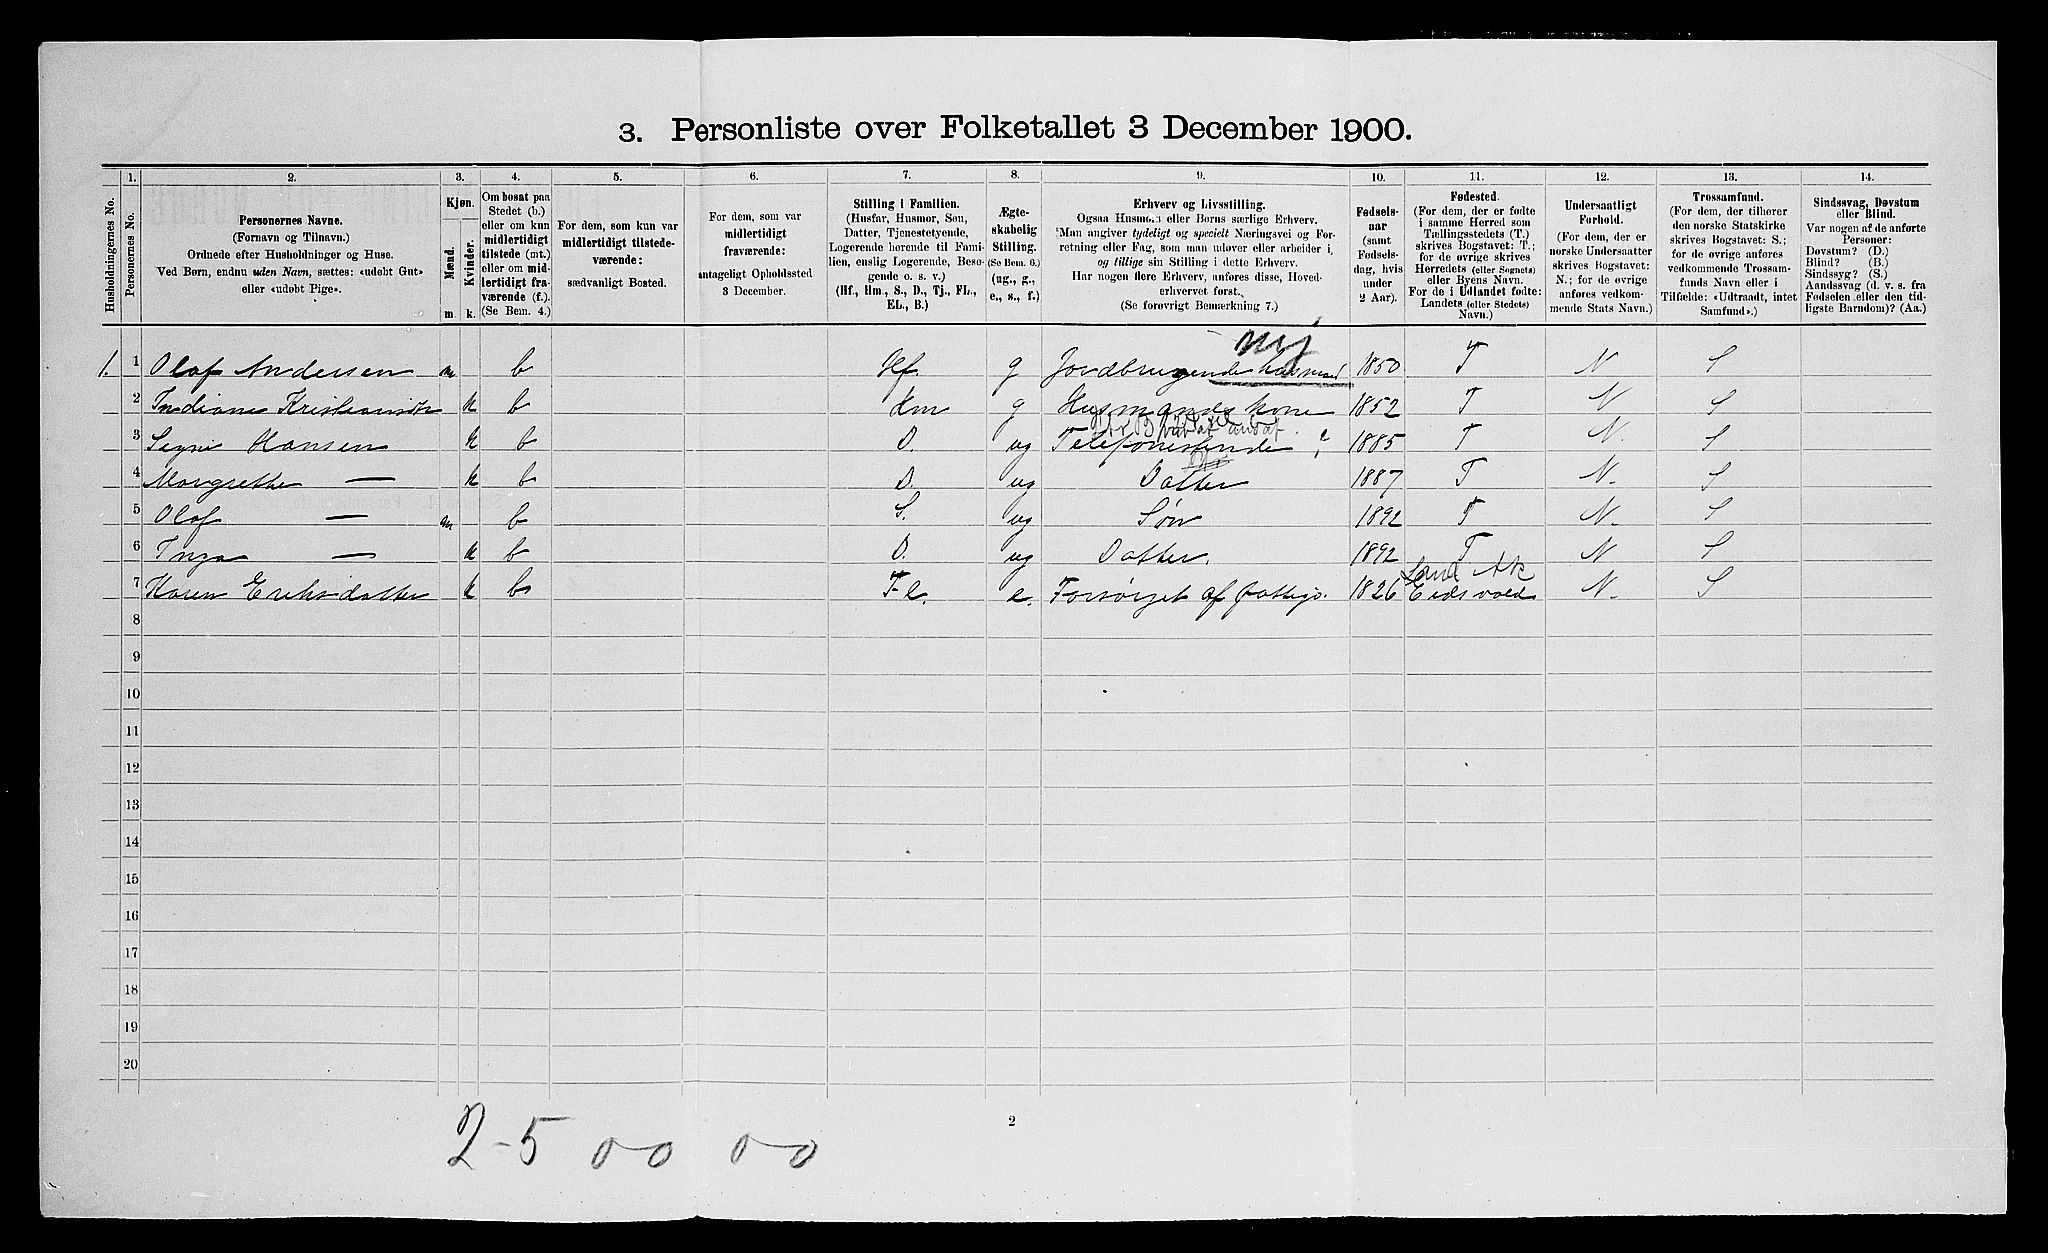 3. Personliste over Folketallet 3 December 1900.
1. 2. 3. 4. 5. 6. 7. 8. 9. 10. 11. 12. 13. 14.
Husholdningernes No.
Personernes No.
Personernes Navne.
(Fornavn og Tilnavn.)
Ordnede efter Husholdninger og Huse.
Ved Børn, endnu uden Navn, sættes: «udøbt Gut»
eller «udøbt Pige».
Kjøn.
Mænd. Kvinder.
m. k.
Om bosat paa
Stedet (b.)
eller om kun
midlertidigt
tilstede (mt.)
eller om mid-
lertidigt fra-
værende (f.).
(Se Bem. 4.)
For dem, som kun var
midlertidigt tilstede-
værende:
sædvanligt Bosted.
For dem, som var
midlertidigt
fraværende:
antageligt Opholdssted
3 December.
Stilling i Familien.
(Husfar, Husmor, Søn,
Datter, Tjenestetyende,
Logerende hørende til Fami-
lien, enslig Logerende, Besø-
gende o. s. v.)
(Hf., Hm., S., D., Tj., FL.,
EL., B.)
Ægte-
skabelig
Stilling.
(Se Bem. 6.)
(ug., g.,
e., s., f.)
Erhverv og Livsstilling.
Ogsaa Husmors eller Børns særlige Erhverv.
Man angiver tydeligt og specielt Næringsvei og For-
retning eller Fag, som man udøver eller arbeider i,
og tillige sin Stilling i dette Erhverv.
Har nogen flere Erhverv, anføres disse, Hoved-
erhvervet først.
(Se forøvrigt Bemærkning 7.)
Fødsels-
aar
(samt
Fødsels-
dag, hvis
under
2 Aar).
Fødested.
(For dem, der er fødte
i samme Herred som
Tællingsstedets (T.)
skrives Bogstavet: T.;
for de øvrige skrives
Herredets (eller Sognets)
eller Byens Navn.
For de i Udlandet fødte:
Landets (eller Stedets)
Navn.)
Undersaatligt
Forhold.
(For dem, der er
norske Undersaatter
skrives Bogstavet:
N.; for de øvrige
anføres vedkom-
mende Stats Navn.)
Trossamfund.
(For dem, der tilhører
den norske Statskirke
skrives Bogstavet: S.;
for de øvrige anføres
vedkommende Trossam-
funds Navn eller i
Tilfælde: «Udtraadt, intet
Samfund».)
Sindssvag, Døvstum
eller Blind.
Var nogen af de anførte
Personer:
Døvstum? (D.)
Blind? (B.)
Sindssyg? (S.)
Aandssvag (d. v. s. fra
Fødselen eller den tid-
ligste Barndom)? (Aa.)
1. 1 Olaf Andersen m b Hf. g Jordbrugende husmand 1850 T N S
2 Indiane k b Hm g Husmands kone 1852 T N S
3 Signe Hansen k b D. ug Telefonistinde ? 1885 T N. S
4 Margrethe — k b D. ug Datter 1887 T N. S
5 Olaf — m b S. ug Søn 1892 T N. S
6 Inga — k b D. ug Datter. 1892 T N S
7 Karen Eriksdatter k b F l. e. Forsørget af Fattigv. 1826 Eidsvold N. S
8
9
10
11
12
13
14
15
16
17
18
19
20
2
2-5 00 00